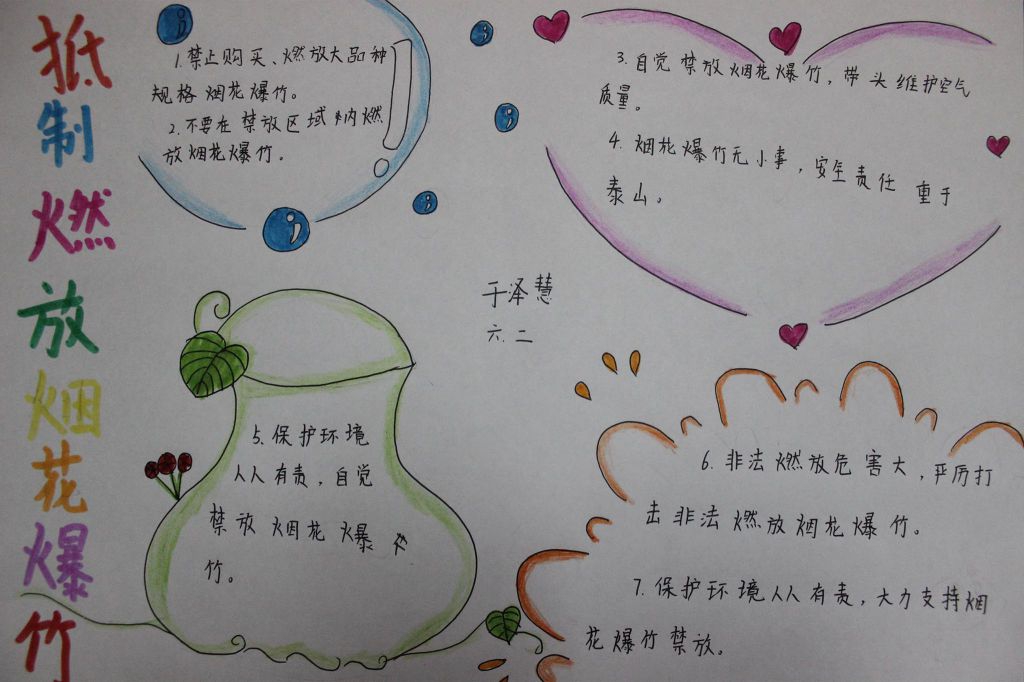 抵制燃放烟花爆竹
1.禁止购买、燃放大品种
规格烟花爆竹。
2.不要在禁放区域内燃
放烟花爆竹。
3.自觉禁放烟花爆竹，带头维护空气
质量。
4.烟花爆竹无小事，安全责任重于
泰山。
于泽慧
六.二
5.保护环境
人人有责，自觉
禁放烟花爆
竹。
6.非法燃放危害大，严厉打
击非法燃放烟花爆竹。
7.保护环境人人有责，大力支持烟
花爆竹禁放。